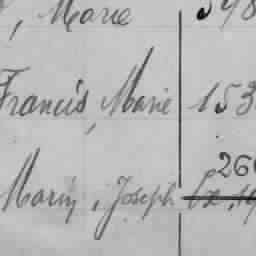 , Marie 598
Francis, Marie 153
Marin, Joseph 266